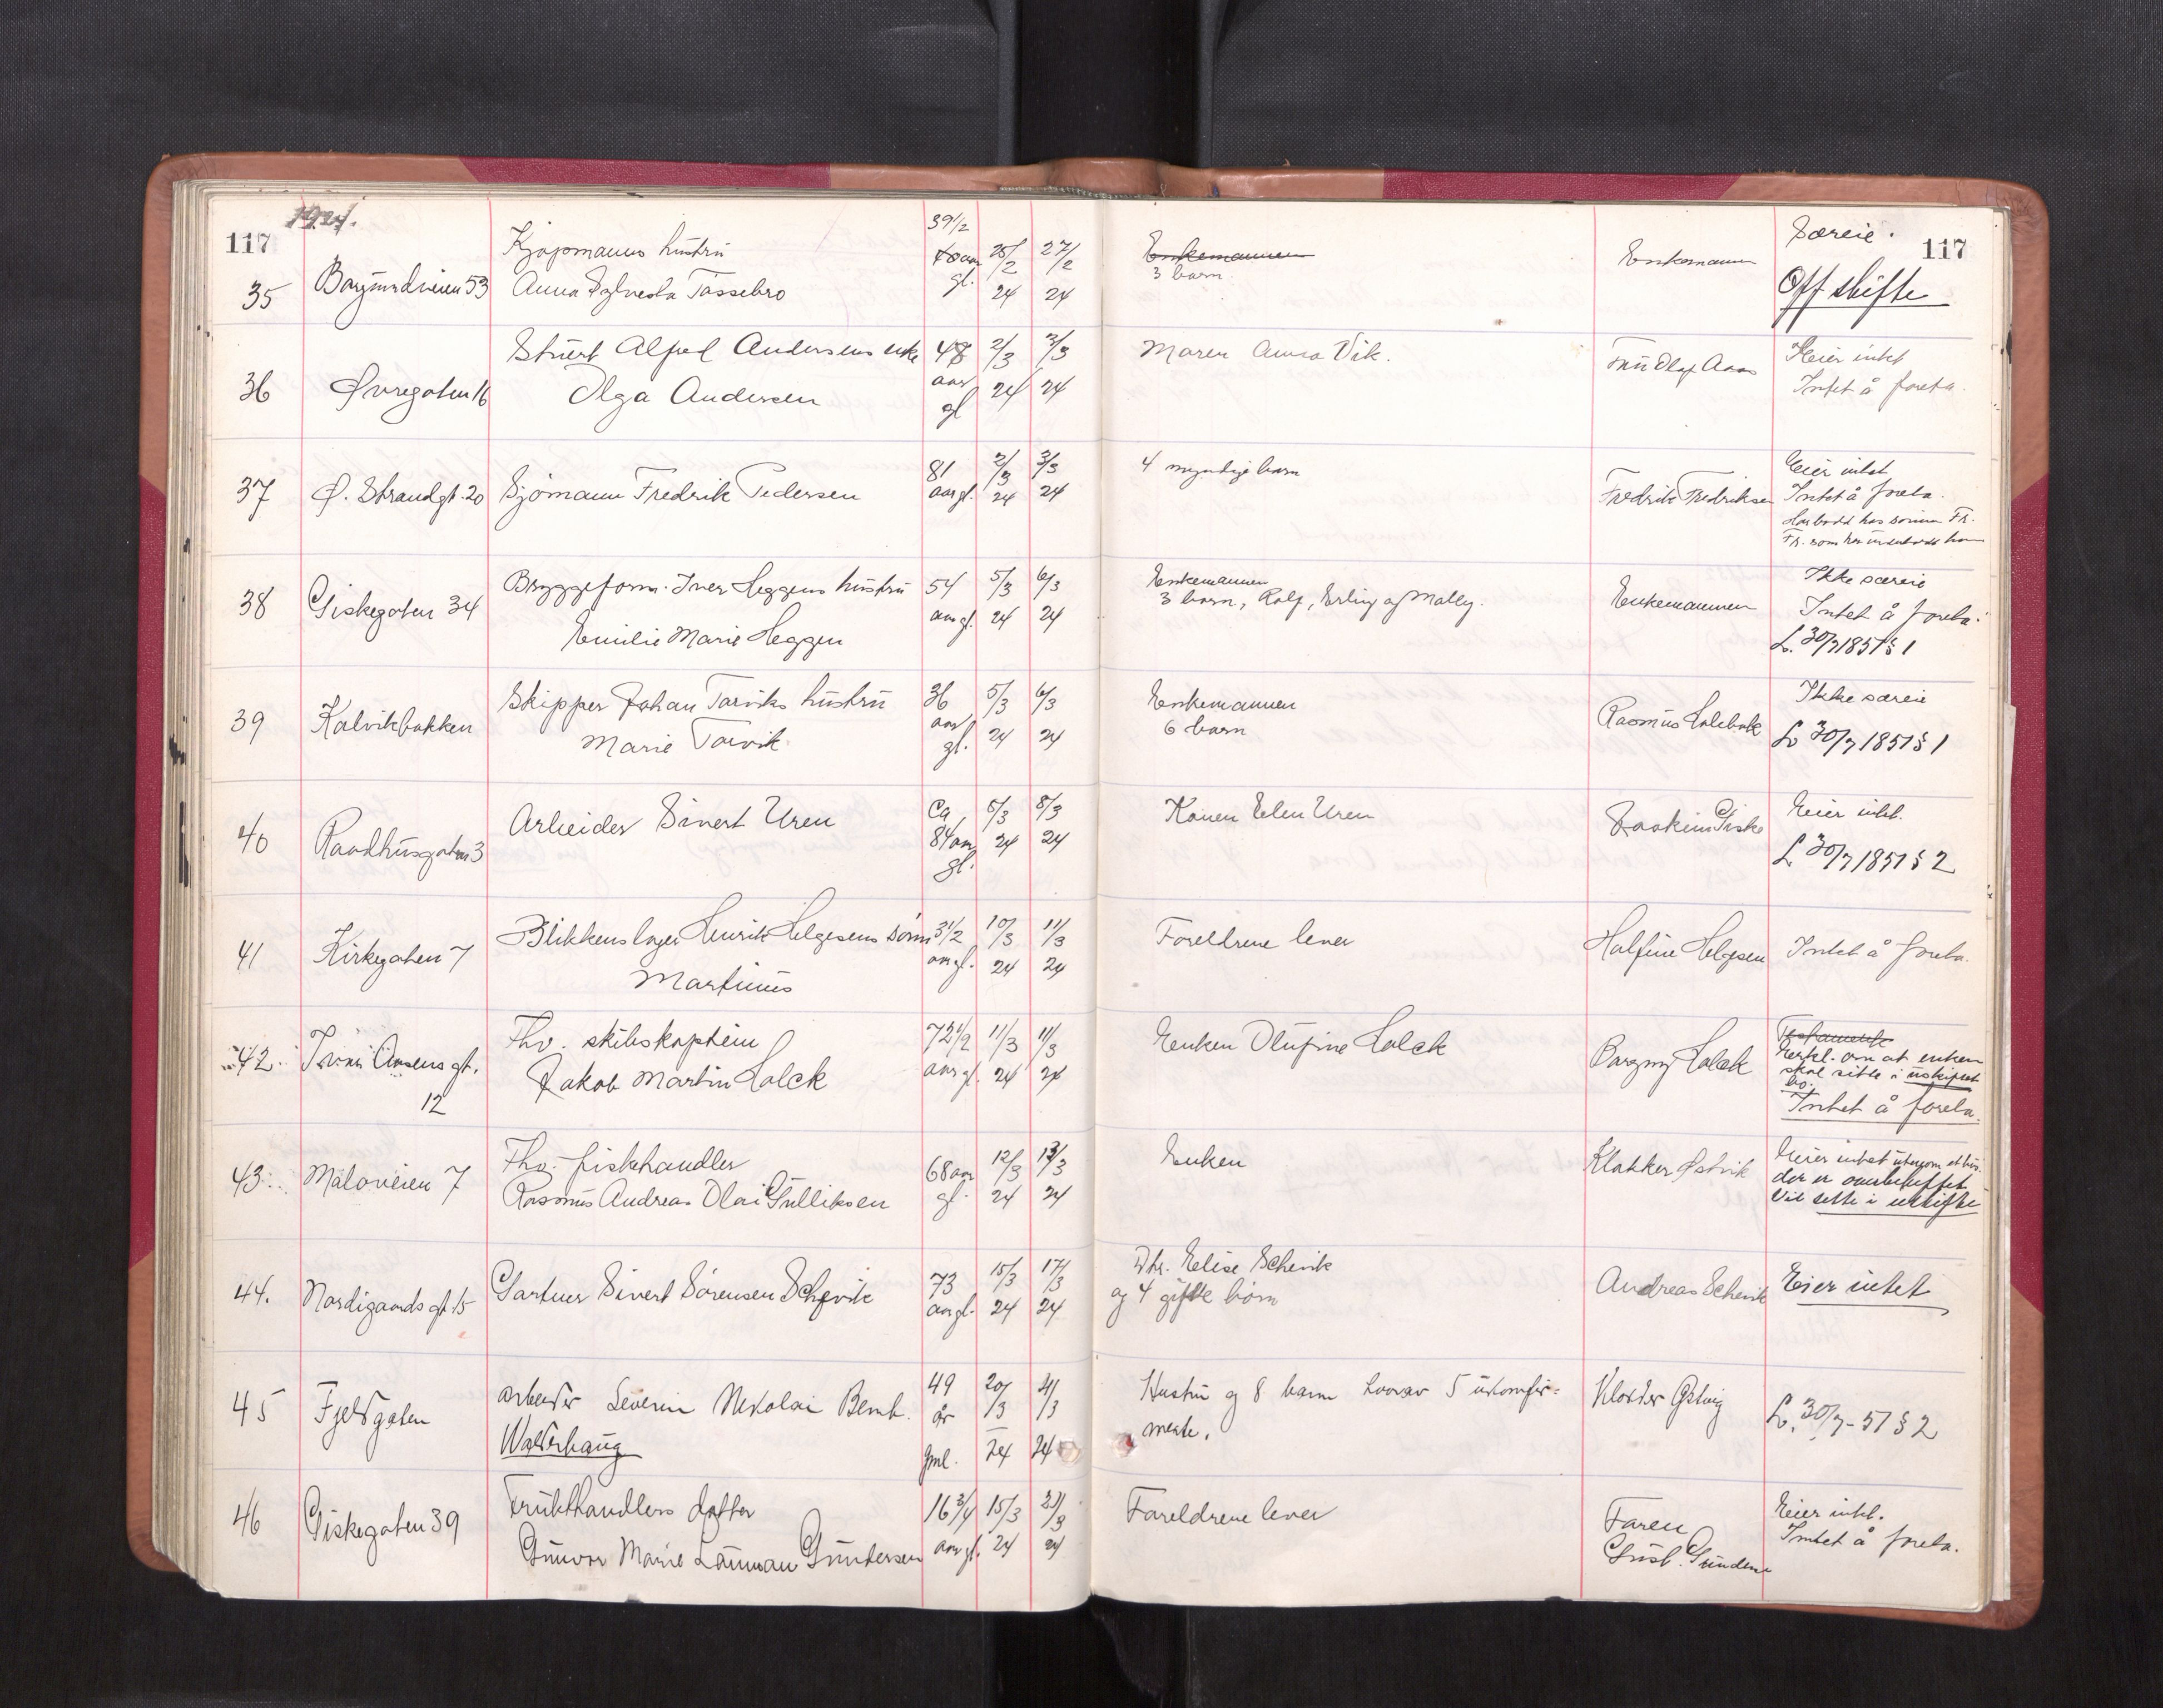 117
1924.
117
35
Borgundveien 53
Kjøpmanns hustru
Anna Sylvesta Tässebro
39 1/2
40 aar
gl.
25/2
24
27/2
24
Enkemannen
3 barn.
Enkemann
Særeie.
Off skifte
36
Øvregaten 16
Stuert Alfred Andersens enke
Olga Andersen
48
aar
gl
2/3
24
3/3
24
Maren Anna Vik.
Fru Olaf Aas
Eier intet
Intet å foreta.
37
Ø. Strandgt. 20
Sjömann Fredrik Pedersen
81
aar gl.
2/3
24
3/3
24
4 myndige barn
Fredrik Fredriksen
Eier intet
Intet å foreta.
Har bodd hos sönnen Fr.
Fr. som har underholdt ham
38
Giskegaten 34
Bryggeform. Iver Heggens hustru
Emilie Marie Heggen
54
aar gl.
5/3
24
6/3
24
Enkemannen
3 barn, Rolf, Erling og Mally.
Enkemannen
Ikke særeie
Intet å foreta.
L. 30/7 1851 § 1
39
Kalvikbakken
Skipper Johan Tarviks hustru
Marie Tarvik
36
aar
gl.
5/3
24
6/3
24
Enkemannen
6 barn
Rasmus Holebak
Ikke særeie
L. 30/7 1851 § 1
40
Raadhusgaten 3
Arbeider Sivert Uren
Ca
84 aar
gl.
5/3
24
8/3
24
Konen Elen Uren
Joakim Giske
Eier intet.
L. 30/7 1851 § 2
41
Kirkegaten 7
Blikkenslager Henrik Helgesens sönn
Martinus
3 1/2
aar gl.
10/3
24
11/3
24
Foreldrene lever
Halfine Helgesen
Intet å foreta.
42.
Ivar Aasens gt.
12
Fhv. skibskaptein
Jakob Martin Holck
72 1/2
aar gl.
11/3
24
11/3
24
Enken Olufine Holck
Borgny Holck
Testamente
Erkl. om at enken
skal sitte i uskiftet
bo.
Intet å foreta.
43.
Maloveien 7
Fhv. fiskehandler
Rasmus Andreas Olai Gulliksen
68 aar
gl.
12/3
24
13/3
24
Enken
Klokker Østvik
Eier intet utenom et hus
der er overbeheftet
Vil sitte i uskifte
44.
Nordigaards gt. 15
Gartner Sivert Sörensen Schevik
73
aar gl.
15/3
24
17/3
24
Dtr. Elise Schevik
og 4 gifte börn
Andreas Schevik
Eier intet
45
Fjeldgaten
Arbeider Severin Nikolai Bernh.
Walderhaug
49
år
gml.
20/3
24
21/3
24
Hustru og 8 barn hvorav 5 ukonfir-
merte.
Klokker Østvig
L. 30/7-51 § 2
46
Giskegaten 39
Frukthandlers datter
Gunvor Marie Lauman Gundersen
16 3/4
aar gl.
15/3
24
21/3
24
Foreldrene lever
Faren
Gust. Gundersen
Eier intet.
Intet å foreta.